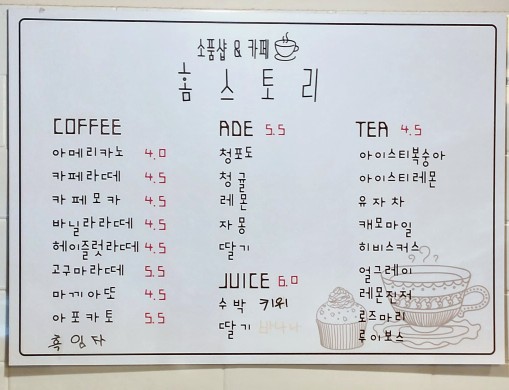 소품샵 & 카페
홈스토리
COFFEE
아메리카노 4.0
카페라떼 4.5
카페모카 4.5
바닐라라떼 4.5
헤이즐럿라떼 4.5
고구마라떼 5.5
마끼아또 4.5
아포카토 5.5
흑임자
ADE 5.5
청포도
청귤
레몬
자몽
딸기
JUICE 6.0
수박 키위
딸기 바나나
TEA 4.5
아이스티복숭아
아이스티레몬
유자차
캐모마일
히비스커스
얼그레이
레몬진저
로즈마리
루이보스